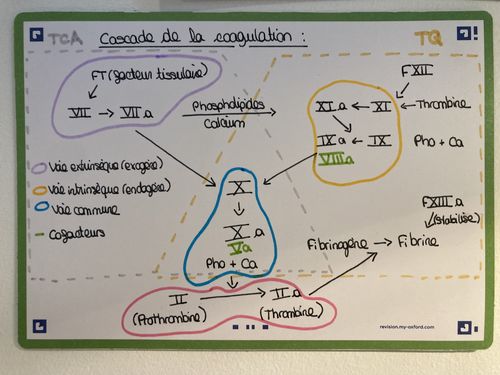 TCA
Cascade de la coagulation :
TQ
FT (facteur tissulaire)
VII → VII a
Phospholipides
Calcium
FXII
XI a ← XI ← Thrombine
IX a ← IX
VIIIa
Pho + Ca
Voie extrinsèque (exogène)
Voie intrinsèque (endogène)
Voie commune
Cofacteurs
X
X a
Va
Pho + Ca
FXIII a
(stabilise)
Fibrinogène → Fibrine
II → II a
(Prothrombine)
(Thrombine)
revision.my-oxford.com